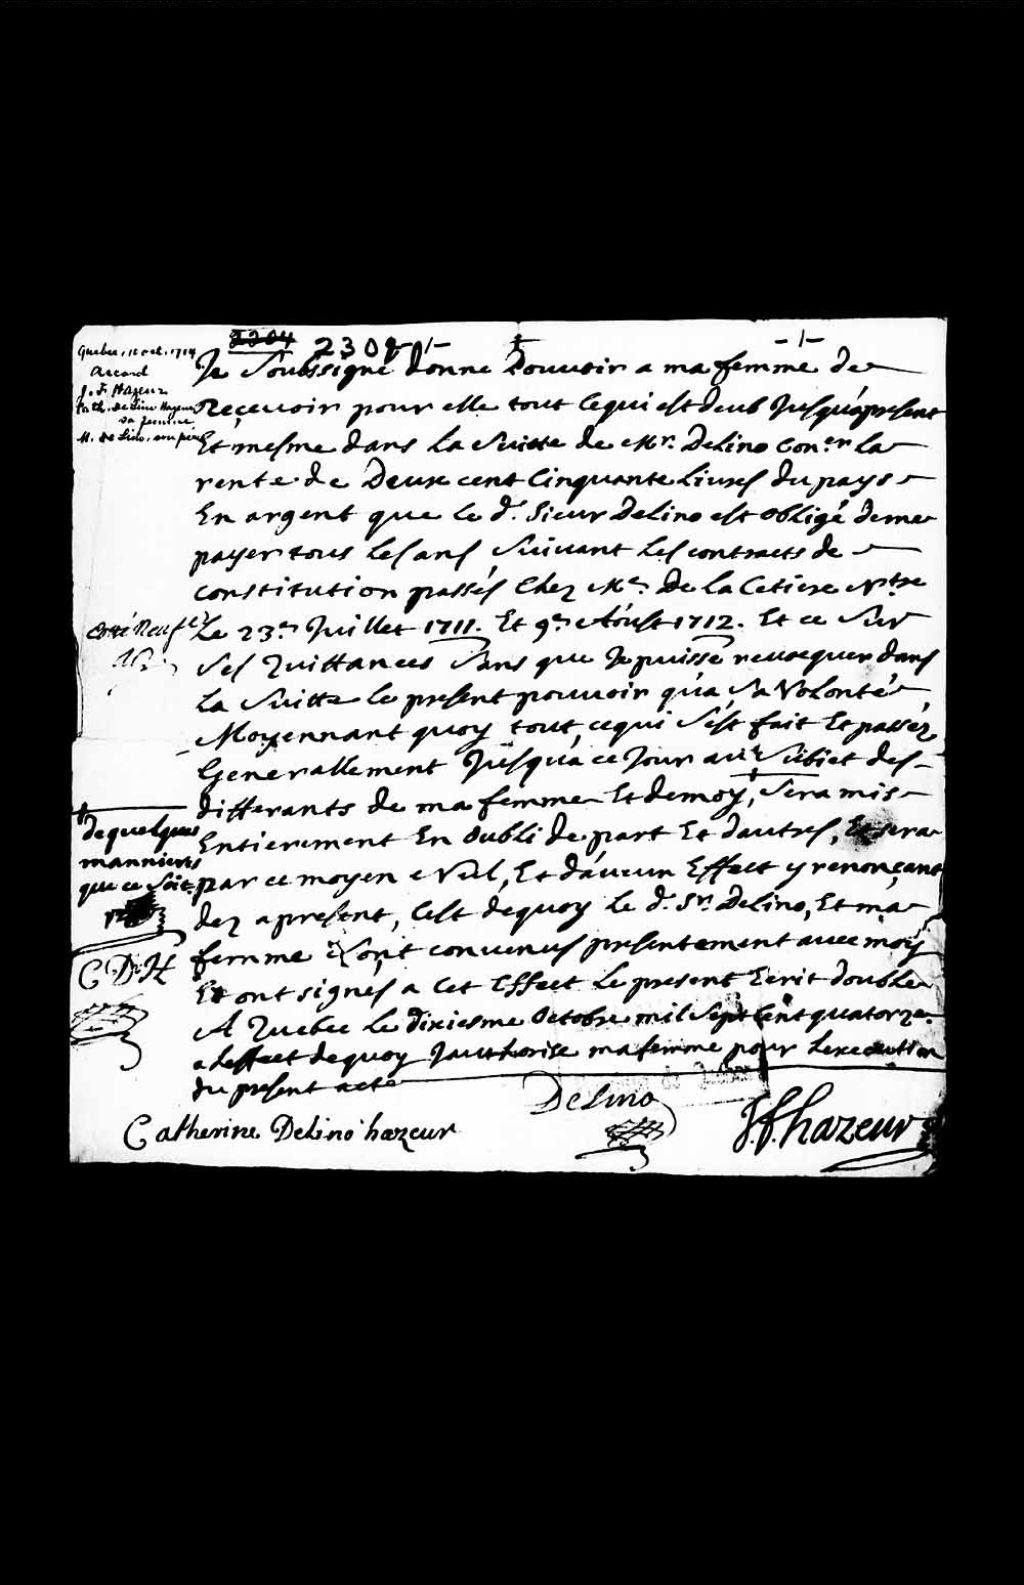 2304 2309
Quebec, 10 oct. 1714
Accord
J. F. Hazeur
Cath. de Lino Hazeur
sa femme
M. de Lino, son père
Je Soussigné donne Pouvoir a ma femme de
Reçevoir pour elle tout Cequi est deub Jusquápresent
Et mesme dans La Suitte de Mr. DeLino Con.er La
rente de Deux cent Cinquante Livres du pays
En argent que Le d. Sieur DeLino est obligé deme
payer tous Les ans Suivant Les contracts de
constitution passés Chez Me. De la Cetiere Ntre
Le 23e. Juillet 1711. Et 9e. Aoust 1712. Et ce Sur
Cotté Neuf
Ses Quittances Sans que Je puisse revocquer dans
La Suitte le present pouvoir qu'a Sa Volonté
Moyennant quoy tout cequi S'est fait Et passéz
Generallement Jusqu'a ce Jour au Subiet des
differants de ma femme Et demoy, Sera mis
dequelques
mannieres
que ce Soit
Entierement En oubli de part Et dautres, Et sera
par ce moyen Nul, Et d'aucun Effect y renonçant
dez apresent, Cest dequoy Le d. Sr. DeLino, Et ma
C D H
femme Sont convenus presentement avec moy
Et ont signés a Cet Effect Le present Ecrit double
A Quebec Le dixiesme Octobre mil Sept Cent quatorze.
a Leffect dequoy Jauthorise ma femme pour Lexecution
du present acte
DeLino
Catherine DeLino hazeur
J.f. hazeur